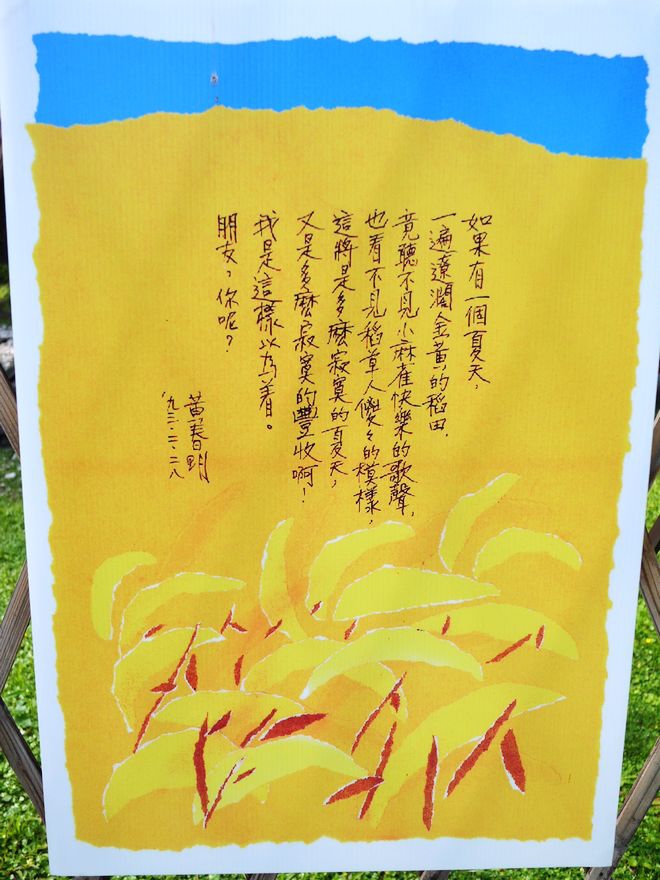 如果有一個夏天，
一遍遼濶金黃的稻田，
竟聽不見小麻雀快樂的歌聲，
也看不見稻草人傻々的模樣，
這將是多麼寂寞的夏天，
又是多麼寂寞的豐收啊！
我是這樣以為着。
朋友，你呢？
黃春明
'九三.二.二八